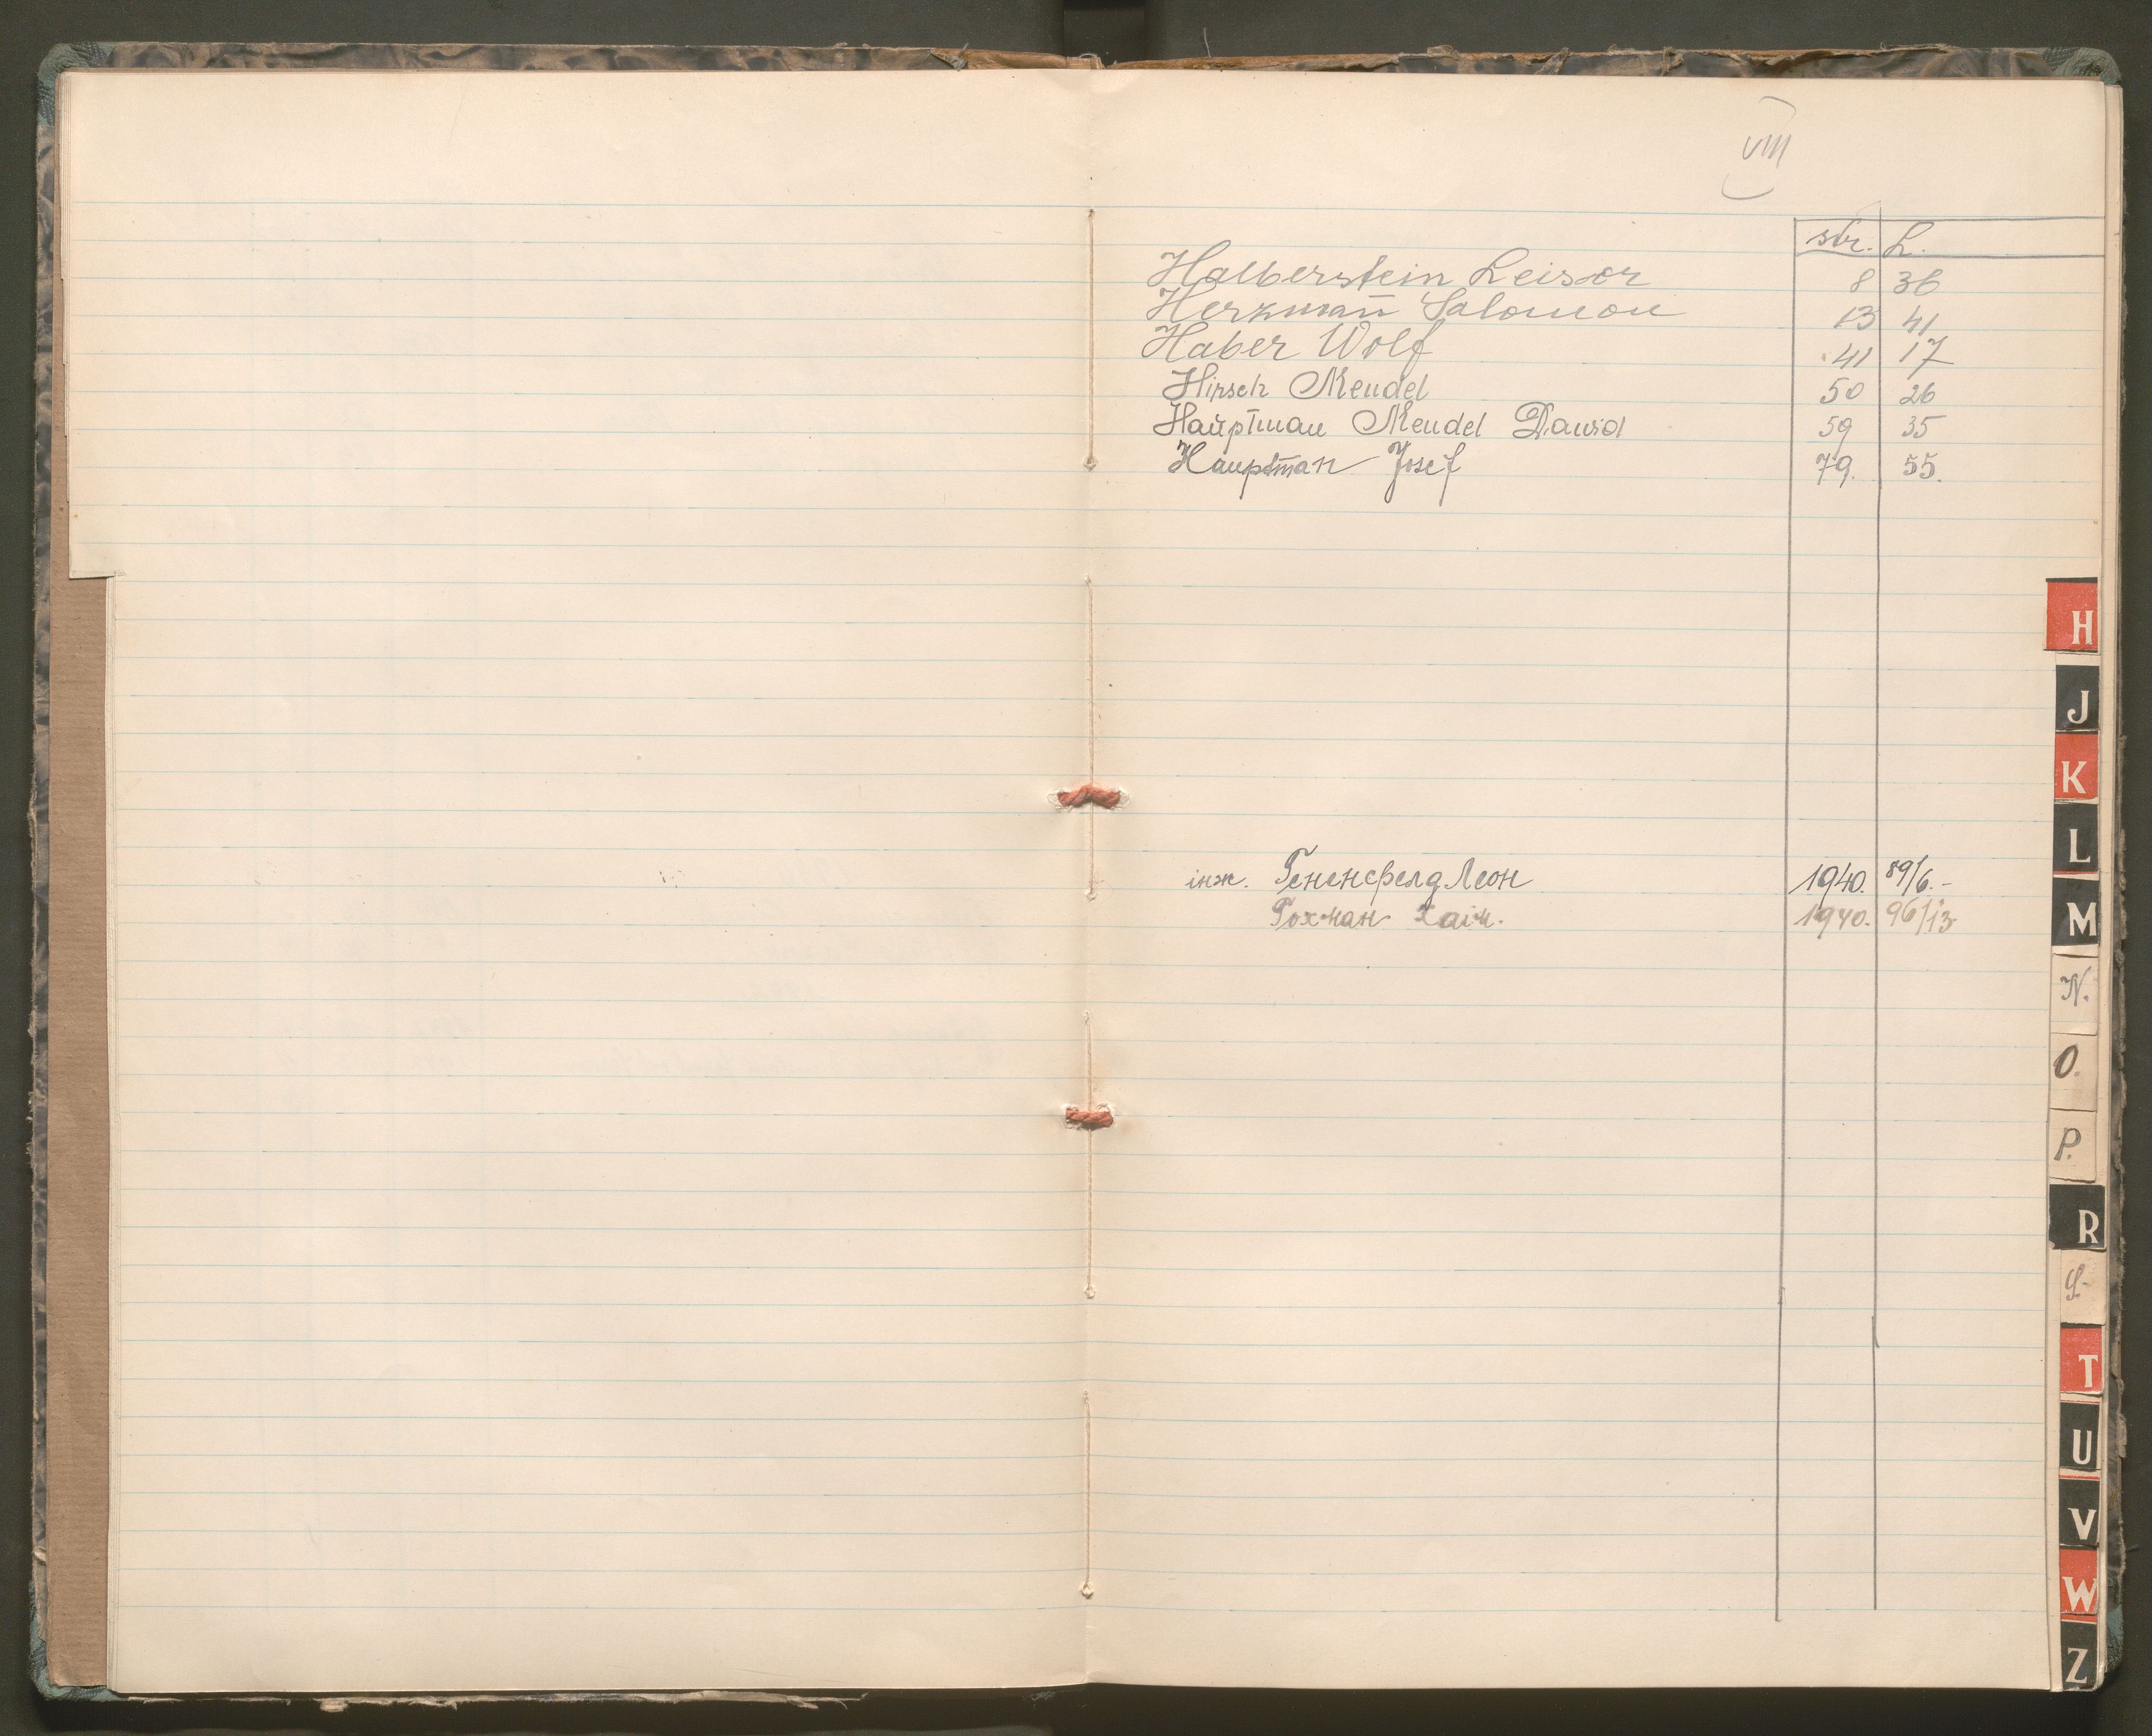 VIII
str. L.
Halberstein Leisor 8 36
Herzman̄ Salomon 13 41
Haber Wolf 41 17
Hirsch Mendel 50 26
Hauptman Mendel Dawid 59 35
Hauptman Josef 79. 55.
інж. Гененфелд Леон 1940. 89/6.-
Гохман Хаім. 1940. 96/13
H
J
K
L
M
N.
O.
P.
R
S.
T
U
V
W
Z